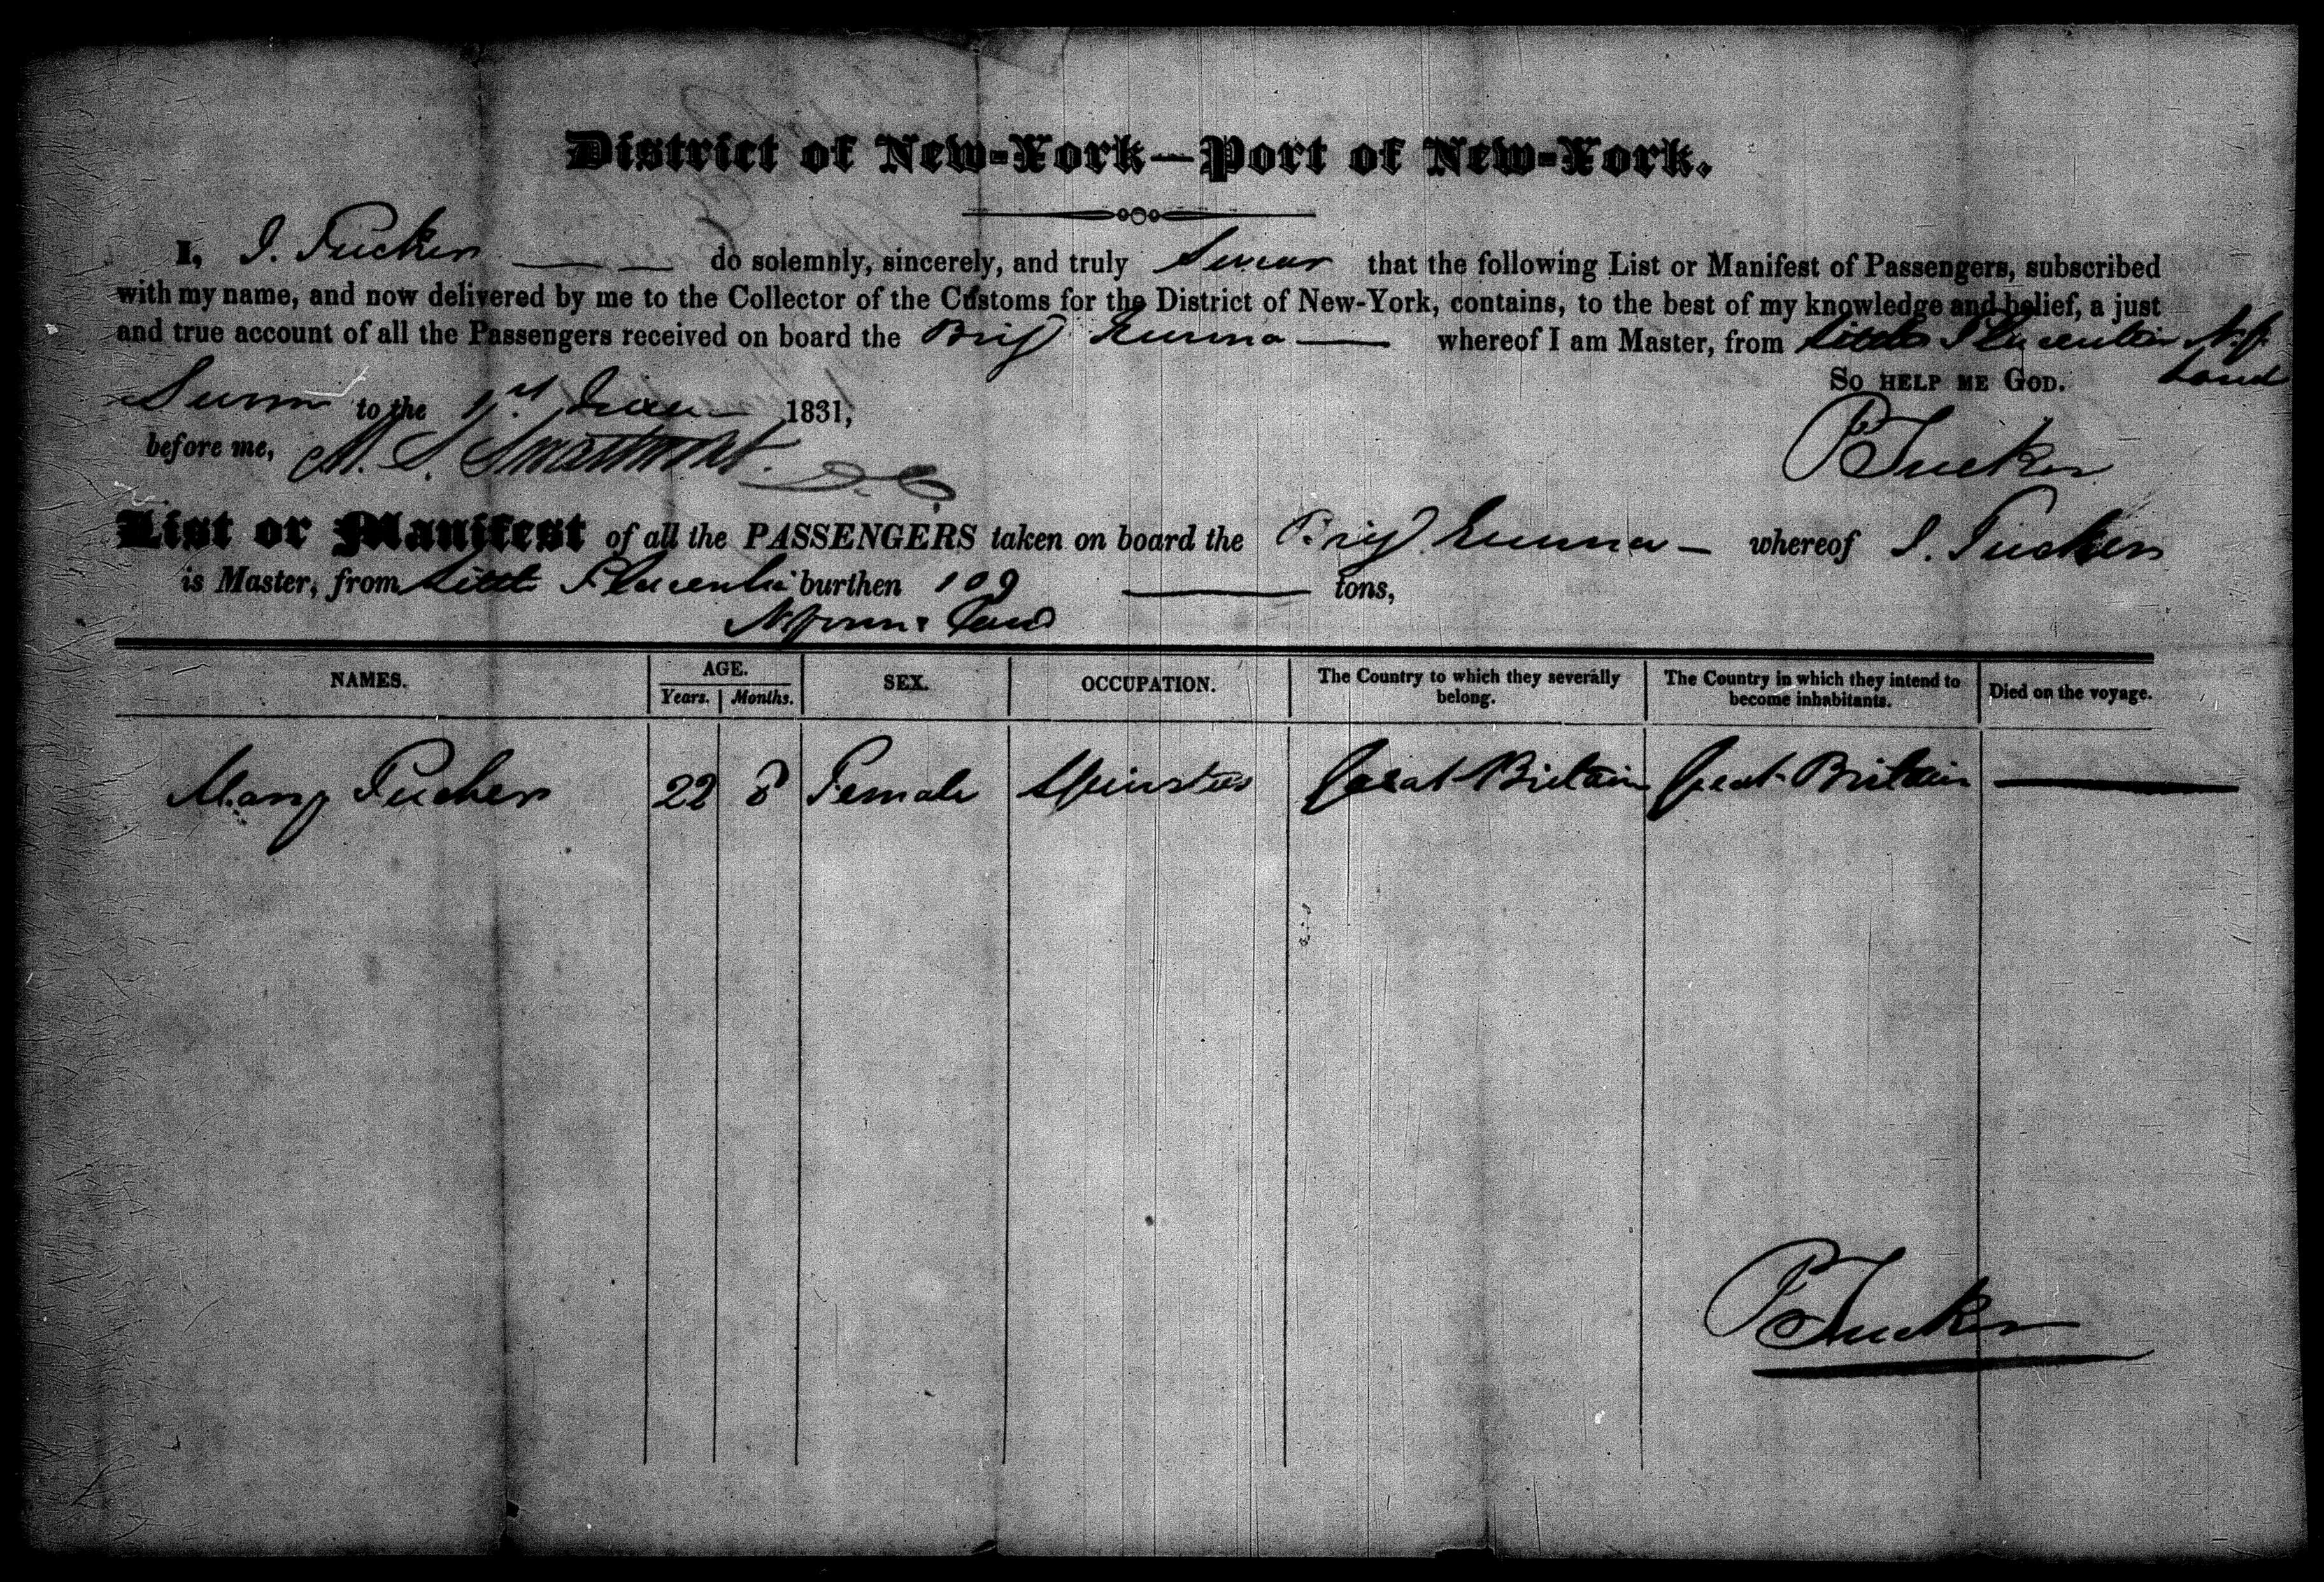 District of New-York—Port of New-York.
I, I. Tucker do solemnly, sincerely, and truly Swear that the following List or Manifest of Passengers, subscribed
with my name, and now delivered by me to the Collector of the Customs for the District of New-York, contains, to the best of my knowledge and belief, a just
and true account of all the Passengers received on board the Brig Emma whereof I am Master, from Little Placentia N.f.
Land
So help me God.
Sworn to the 1831,
before me, M. S. Swartwout. D.C.
Tucker
List or Manifest of all the PASSENGERS taken on board the Brig Emma — whereof I. Tucker
is Master, from Little Placentia burthen 109 tons,
Nfoun. Land
NAMES. AGE. SEX. OCCUPATION. The Country to which they severally belong. The Country in which they intend to become inhabitants. Died on the voyage.
Years. Months.
Mary Tucker 22 8 Female Spinster Great Britain Great Britain
Tucker